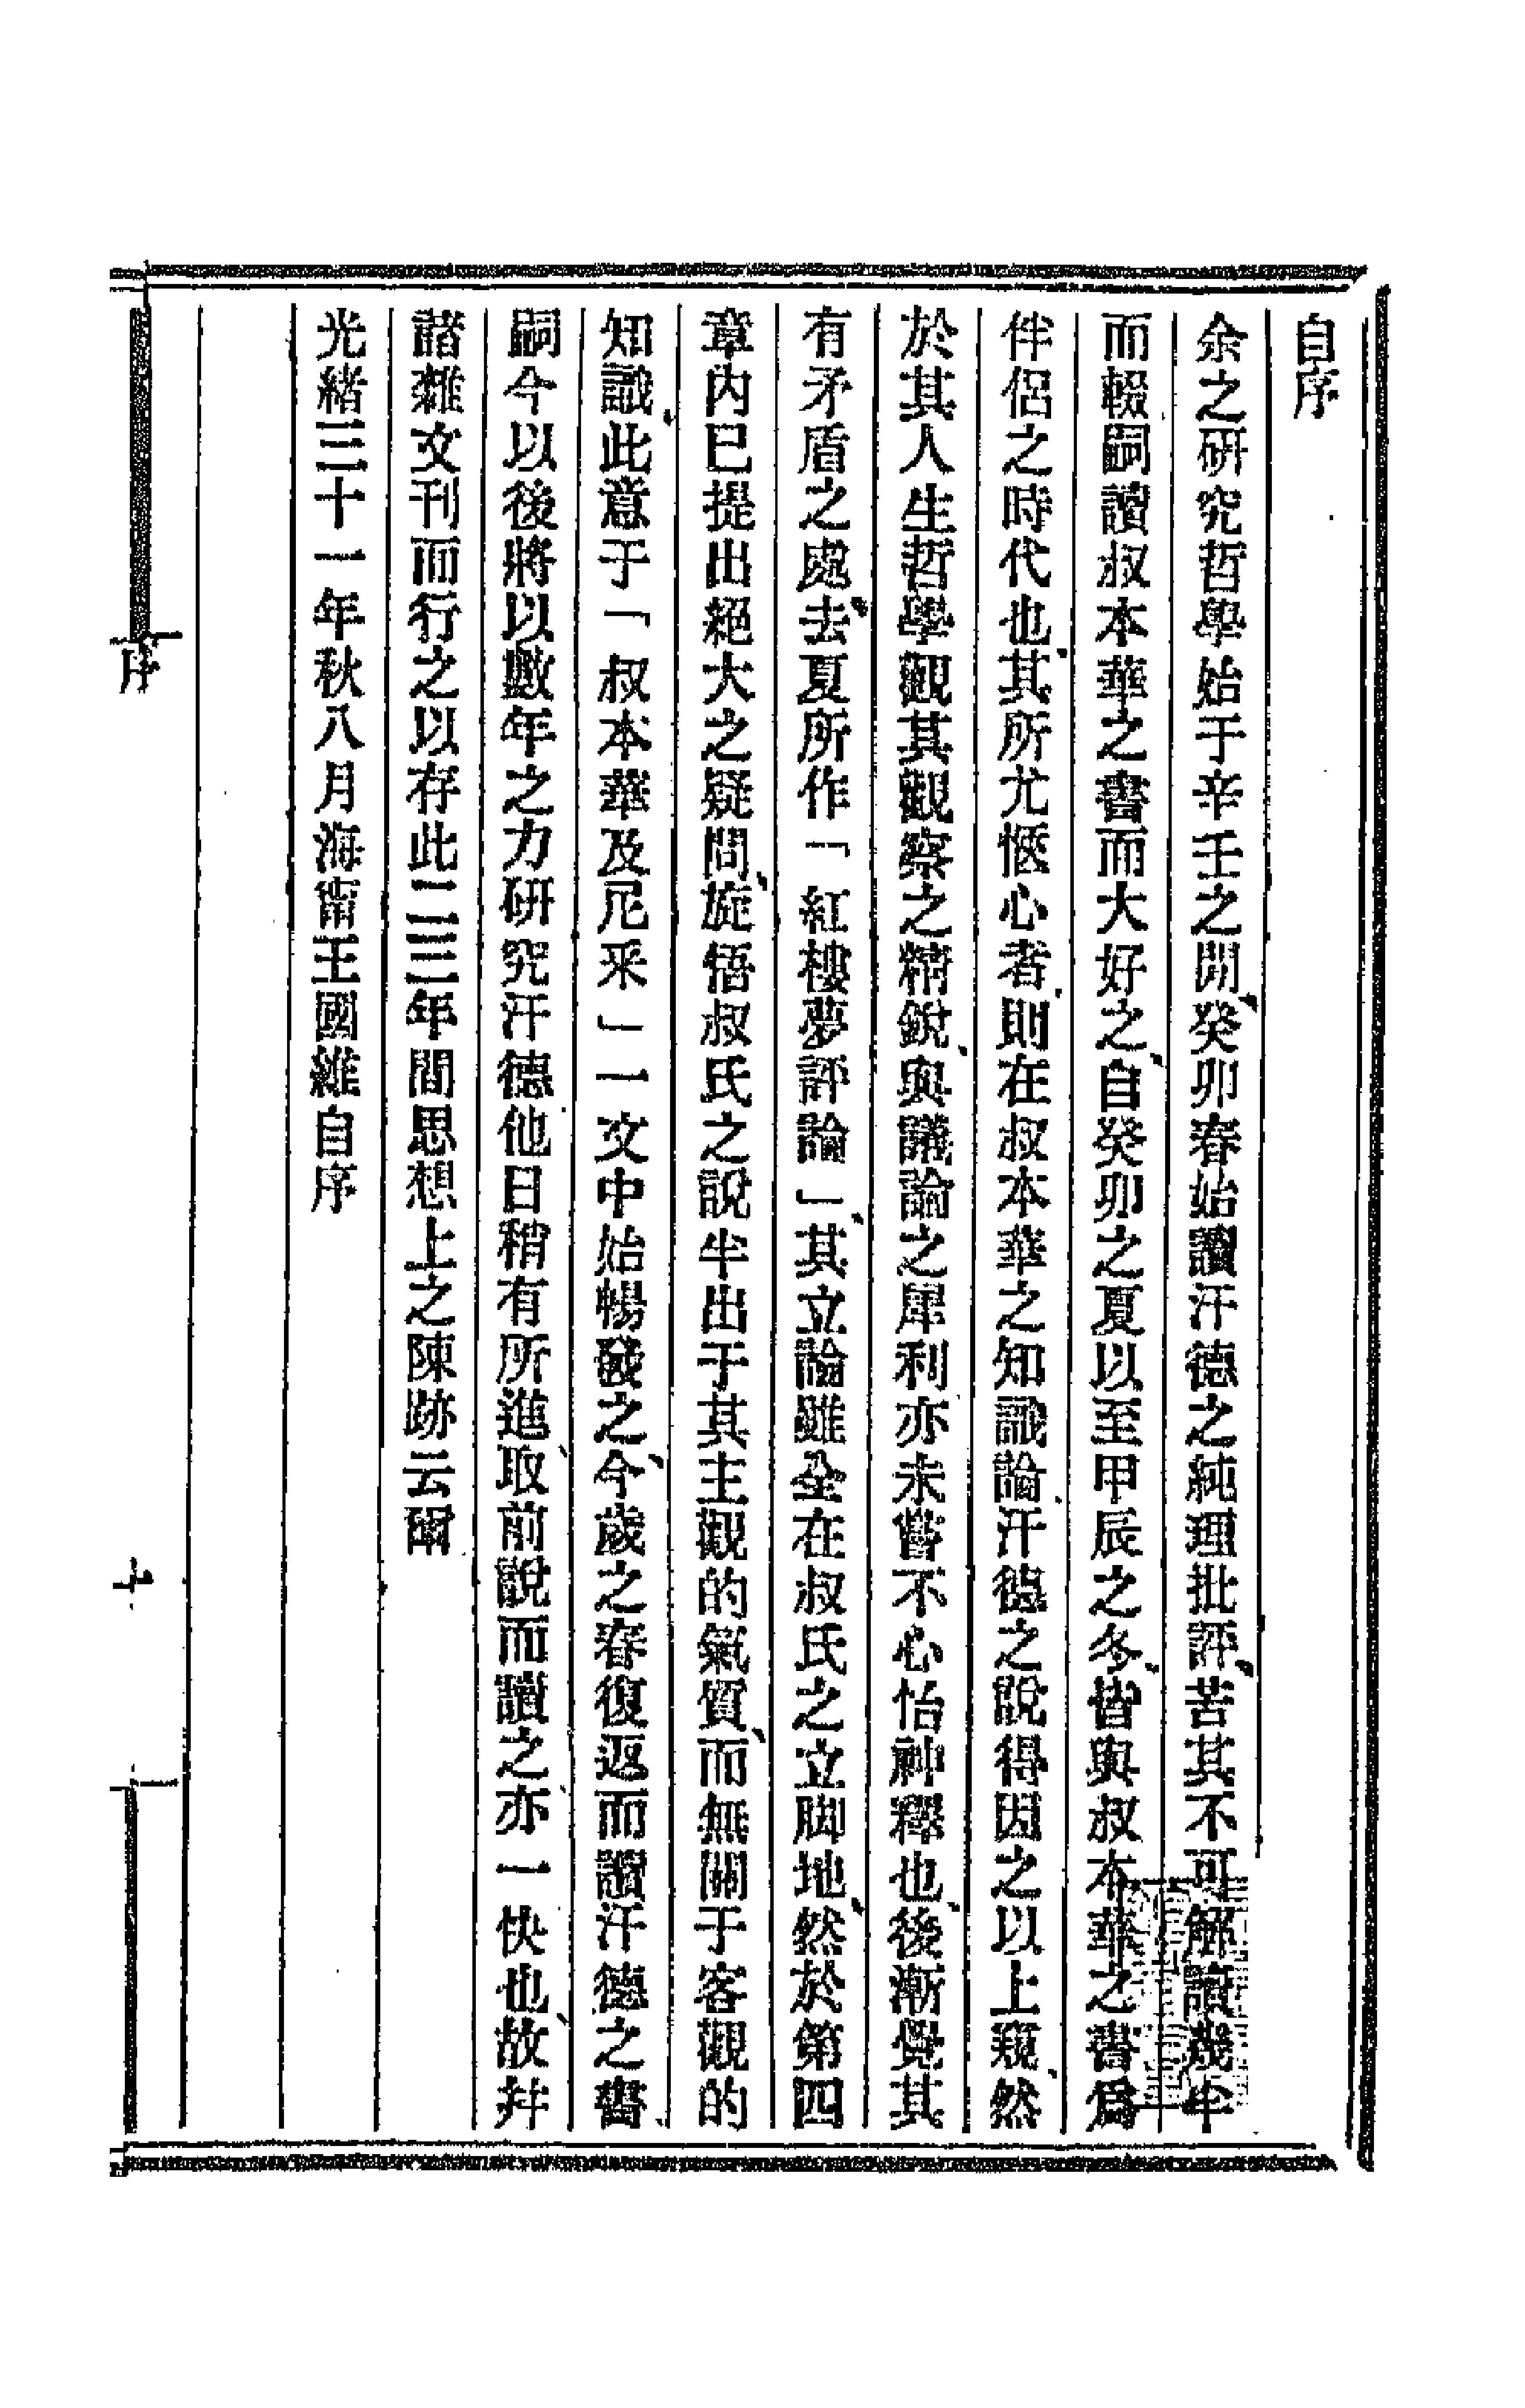 自序
余之研究哲學始于辛壬之間、癸卯春始讀汗德之純理批評、苦其不可解讀幾半
而輟嗣讀叔本華之書而大好之、自癸卯之夏以至甲辰之冬、皆與叔本華之書爲
伴侶之時代也、其所尤愜心者、則在叔本華之知識論、汗德之說得因之以上窺、然
於其人生哲學觀其觀察之精銳、與議論之犀利亦未嘗不心怡神釋也、後漸覺其
有矛盾之處、去夏所作「紅樓夢評論」、其立論雖全在叔氏之立脚地、然於第四
章內已提出絕大之疑問、旋悟叔氏之說半出于其主觀的氣質、而無關于客觀的
知識、此意于「叔本華及尼采」一文中始暢發之、今歲之春復返而讀汗德之書、
嗣今以後將以數年之力研究汗德他日稍有所進、取前說而讀之、亦一快也、故幷
諸雜文刊而行之以存此二三年間思想上之陳跡云爾
光緒三十一年秋八月海甯王國維自序
序